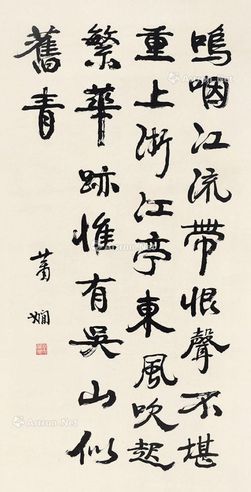 嗚咽江流帶恨聲不堪
重上浙江亭東風吹起
繁華跡惟有吳山似
舊青
蕭嫻